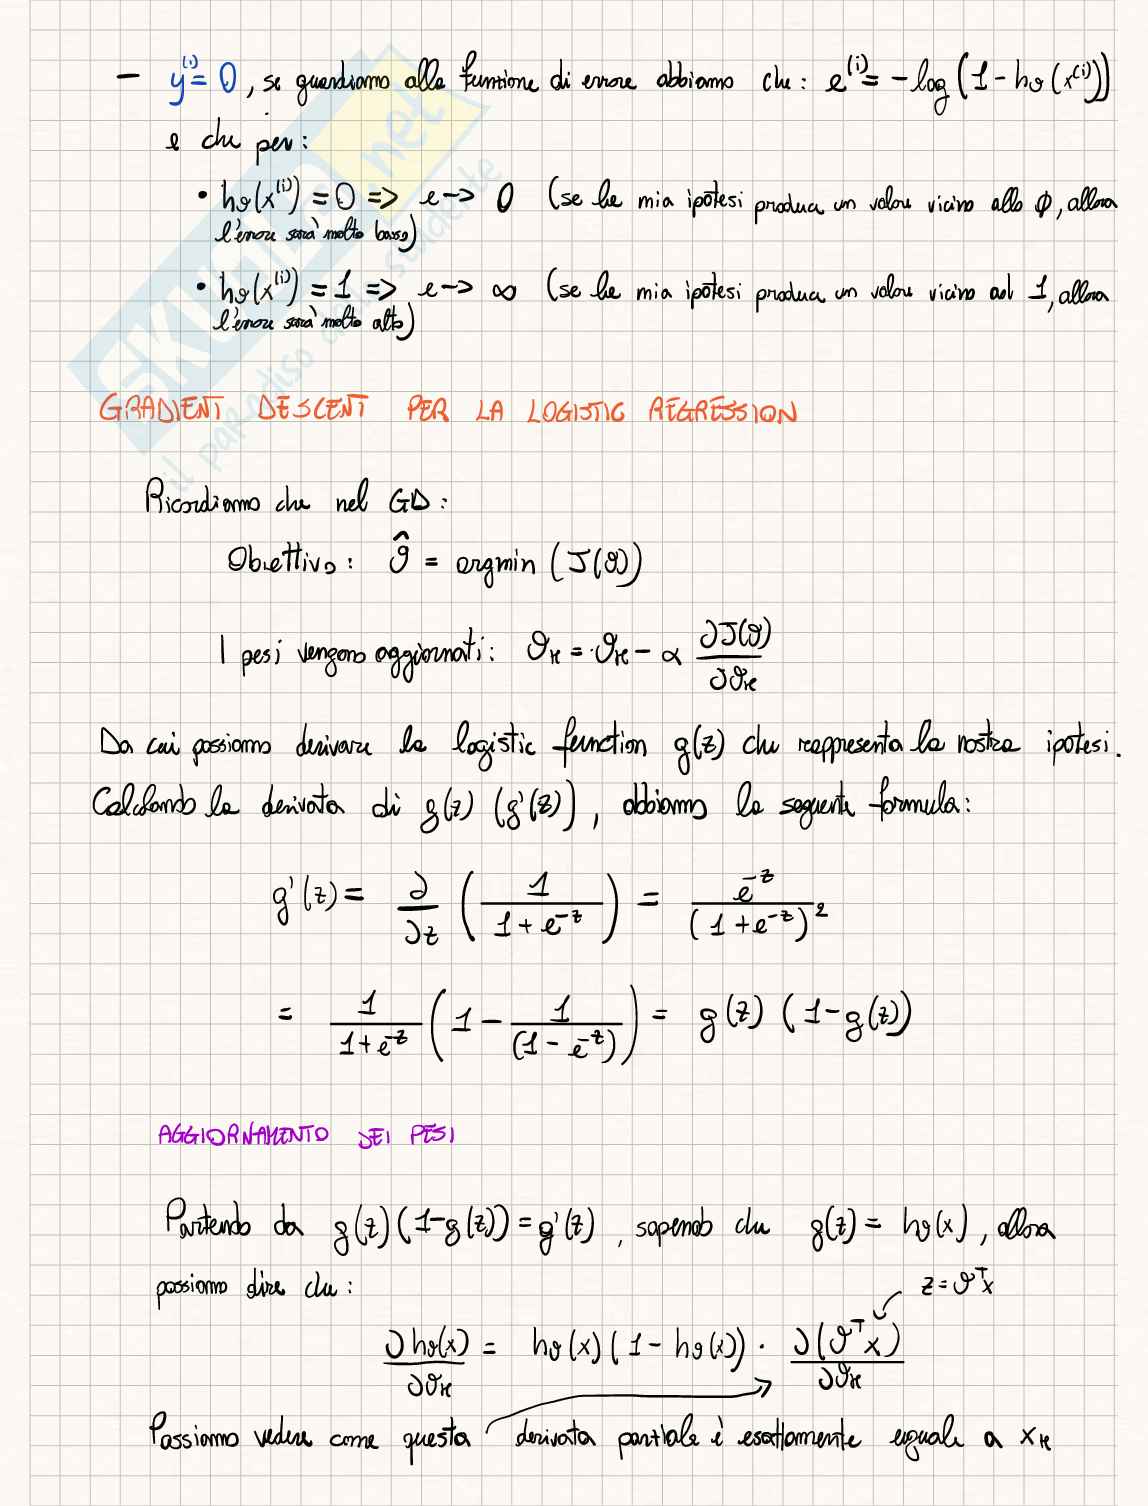 - y⁽ⁱ⁾= 0, se guardiamo alla funzione di errore abbiamo che: e⁽ⁱ⁾= -log(1 - hϑ(x⁽ⁱ⁾))
e che per:
• hϑ(x⁽ⁱ⁾) = 0 => e -> 0 (se la mia ipotesi produce un valore vicino allo ϕ, allora
l'errore sarà molto basso)
• hϑ(x⁽ⁱ⁾) = 1 => e -> ∞ (se la mia ipotesi produce un valore vicino ad 1, allora
l'errore sarà molto alto)
GRADIENT DESCENT PER LA LOGISTIC REGRESSION
Ricordiamo che nel GD:
Obiettivo: ϑ̂ = argmin (J(ϑ))
I pesi vengono aggiornati: ϑₖ = ϑₖ - α ∂J(ϑ)/∂ϑₖ
Da cui possiamo derivare la logistic function g(z) che rappresenta la nostra ipotesi.
Calcolando la derivata di g(z) (g'(z)), abbiamo la seguente formula:
g'(z) = ∂/∂z (1/(1+e⁻ᶻ)) = e⁻ᶻ/(1+e⁻ᶻ)²
= 1/(1+e⁻ᶻ) (1 - 1/(1-e⁻ᶻ)) = g(z) (1-g(z))
AGGIORNAMENTO DEI PESI
Partendo da g(z)(1-g(z)) = g'(z), sapendo che g(z) = hϑ(x), allora
possiamo dire che:
z = ϑᵀx
∂hϑ(x)/∂ϑₖ = hϑ(x)(1 - hϑ(x)) · ∂(ϑᵀx)/∂ϑₖ
Possiamo vedere come questa derivata parziale è esattamente uguale a xₖ
SKUOLA.net
il paradiso dello studente